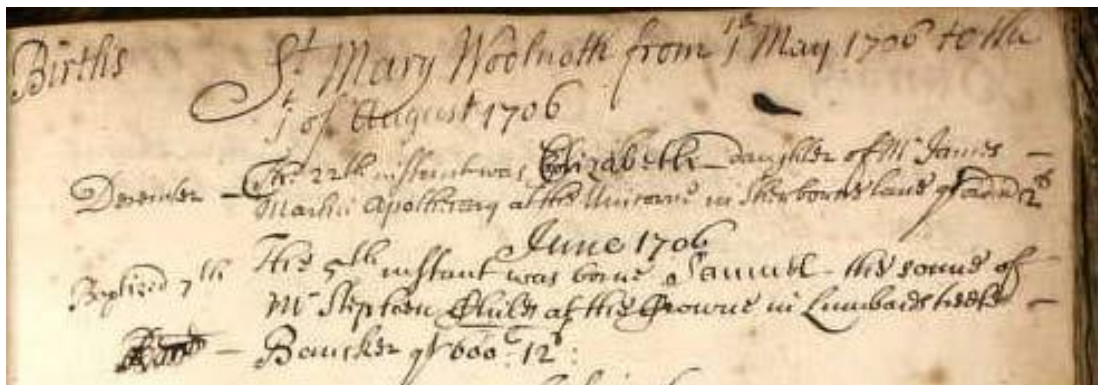 Births St Mary Woolnoth from 1st May 1706 to the
1st of August 1706
December - The 22th instant was Elizabeth daughter of Mr James -
Martin Apothecary at the Unicorne in Sherborne lane
June 1706
Baptized 7th The 5th instant was borne Samuel the sonne of
Mr Stephen Childs at the Crowne in Lumbard streete -
- Bancker qt 600: